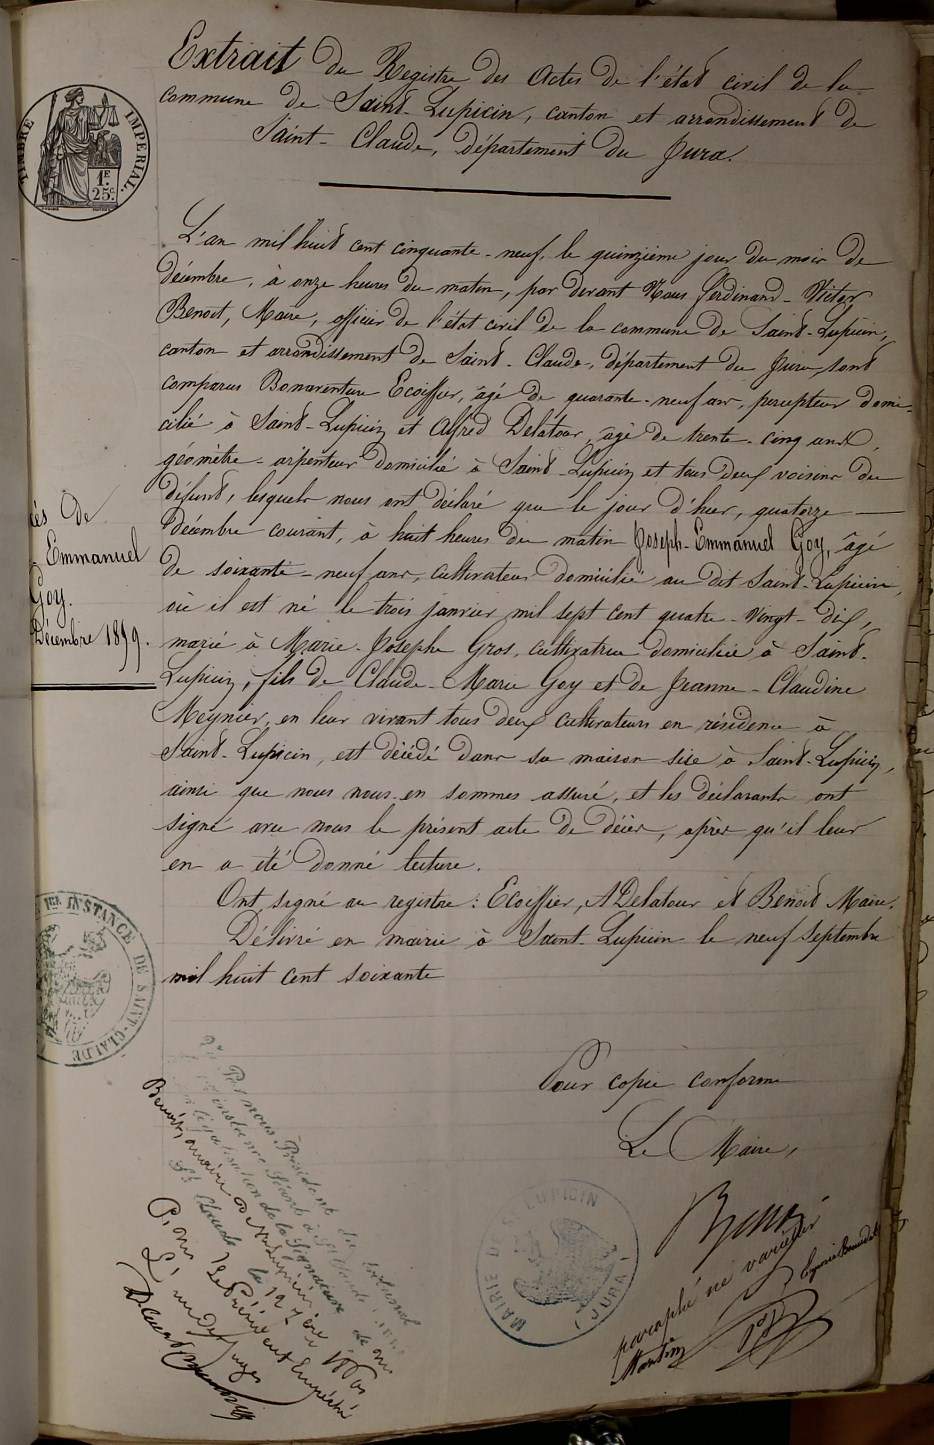 Extrait du Registre des Actes de l'état civil de la
commune de Saint-Lupicin, canton et arrondissement de
Saint-Claude, département du Jura.
TIMBRE IMPERIAL
1F.
25c.
L'an mil huit cent cinquante-neuf, le quinzième jour du mois de
décembre, à onze heures du matin, par devant Nous Ferdinand-Victor
Benoit, Maire, officier de l'état civil de la commune de Saint-Lupicin,
canton et arrondissement de Saint-Claude, département du Jura sont
comparus Bonaventure Ecoiffier, âgé de quarante-neuf ans, percepteur domi-
cilié à Saint-Lupicin et Alfred Delatour, âgé de trente-cinq ans,
géomètre-arpenteur domicilié à Saint-Lupicin et tous deux voisins du
défunt, lesquels nous ont déclaré que le jour d'hier, quatorze
Décembre courant, à huit heures du matin Joseph-Emmanuel Goy, âgé
de soixante-neuf ans, cultivateur domicilié au dit Saint-Lupicin,
où il est né le trois janvier mil sept cent quatre-vingt-dix,
marié à Marie-Josephe Gros, cultivatrice domiciliée à Saint-
Lupicin, fils de Claude-Marie Goy et de Jeanne-Claudine
Meynier, en leur vivant tous deux cultivateurs en résidence à
Saint-Lupicin, est décédé dans sa maison sise à Saint-Lupicin,
ainsi que nous nous en sommes assuré, et les déclarants ont
signé avec nous le présent acte de décès, après qu'il leur
en a été donné lecture.
Ont signé au registre : Ecoiffier, A Delatour et Benoit Maire.
Délivré en mairie à Saint-Lupicin le neuf Septembre
mil huit cent soixante
cès de
Emmanuel
Goy.
Décembre 1859.
1re INSTANCE DE SAINT-CLAUDE
Pour copie conforme
Le Maire,
Benoit
MAIRIE DE St LUPICIN
(JURA)
paraphé ne varietur
Vu Par nous Président du tribunal
de 1re instance Séant à St Claude
légalisation de la Signature de mr
Benoit, maire de St Lupicin
St Claude le 12 1860
Pour le Président Empêché
L'un des juges